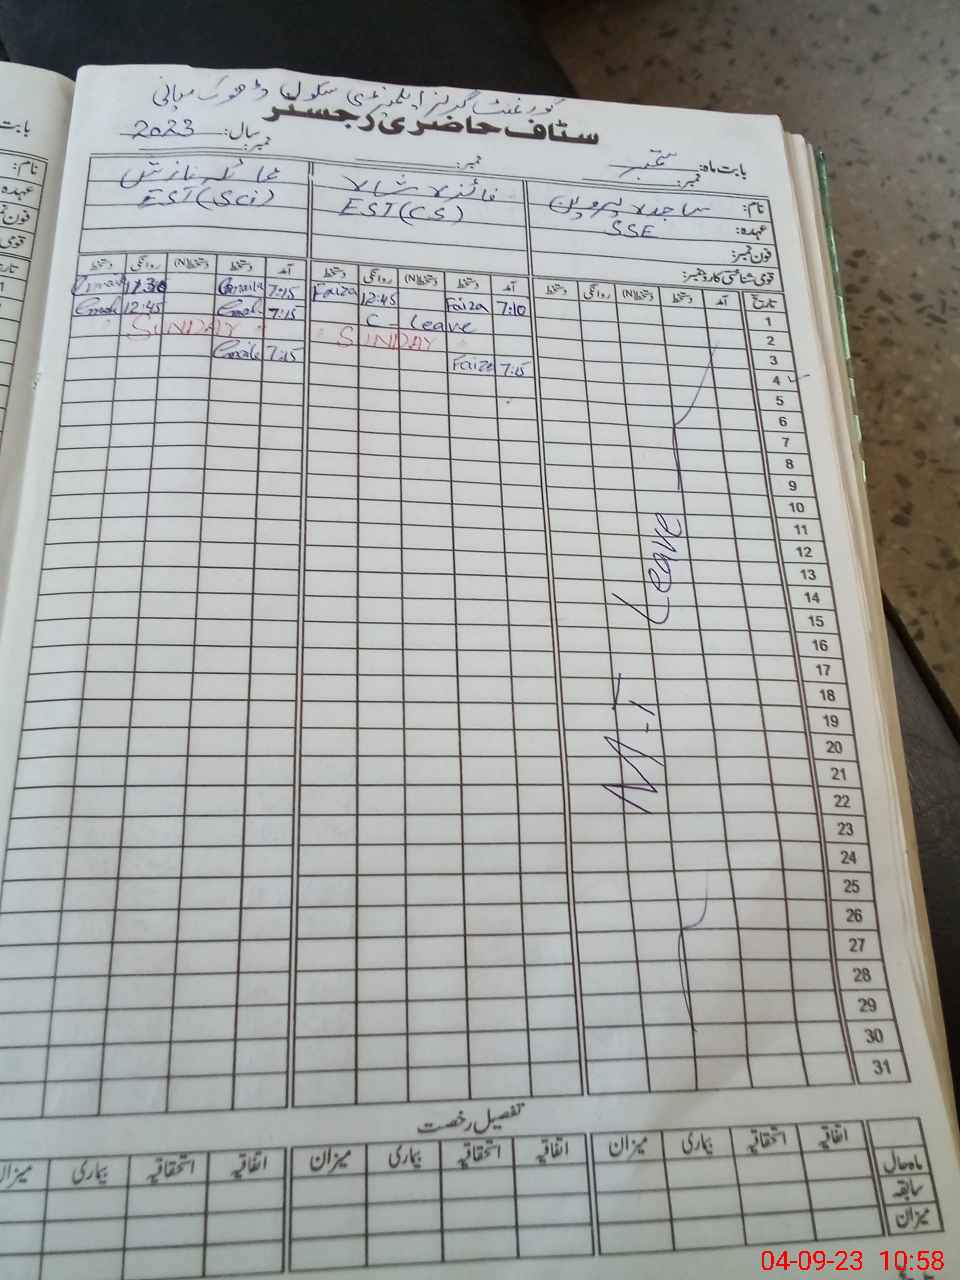 گورنمنٹ گرلز ایلیمنٹری سکول ڈھوک میانی
سٹاف حاضری رجسٹر
بابت ماہ: ستمبر نمبر: سال: 2023
نمبر: نمبر:
نام: ساجدہ پروین فائزہ
عہدہ: SSE EST(CS) EST(Sci)
فون نمبر:
قومی شناختی کارڈ نمبر:
تاریخ آمد دستخط دستخط(N) روانگی دستخط آمد دستخط دستخط(N) روانگی دستخط آمد دستخط دستخط(N) روانگی دستخط
1 7:10 Faiza 12:45 Faiza 7:15 11:30
2 C-Leave 7:15 12:45
3 SUNDAY SUNDAY
4 7:15 Faiza 7:15
5
6
7
8
9
10
11
12
13
14
15
16
17
18
19
20
21
22
23
24
25
26
27
28
29
30
31
Leave
تفصیل رخصت
اتفاقیہ استحقاقیہ بیماری میزان اتفاقیہ استحقاقیہ بیماری میزان اتفاقیہ استحقاقیہ بیماری میزان
ماہ حال
سابقہ
میزان
بابت
نام:
عہدہ
فون نمبر
قومی
04-09-23 10:58